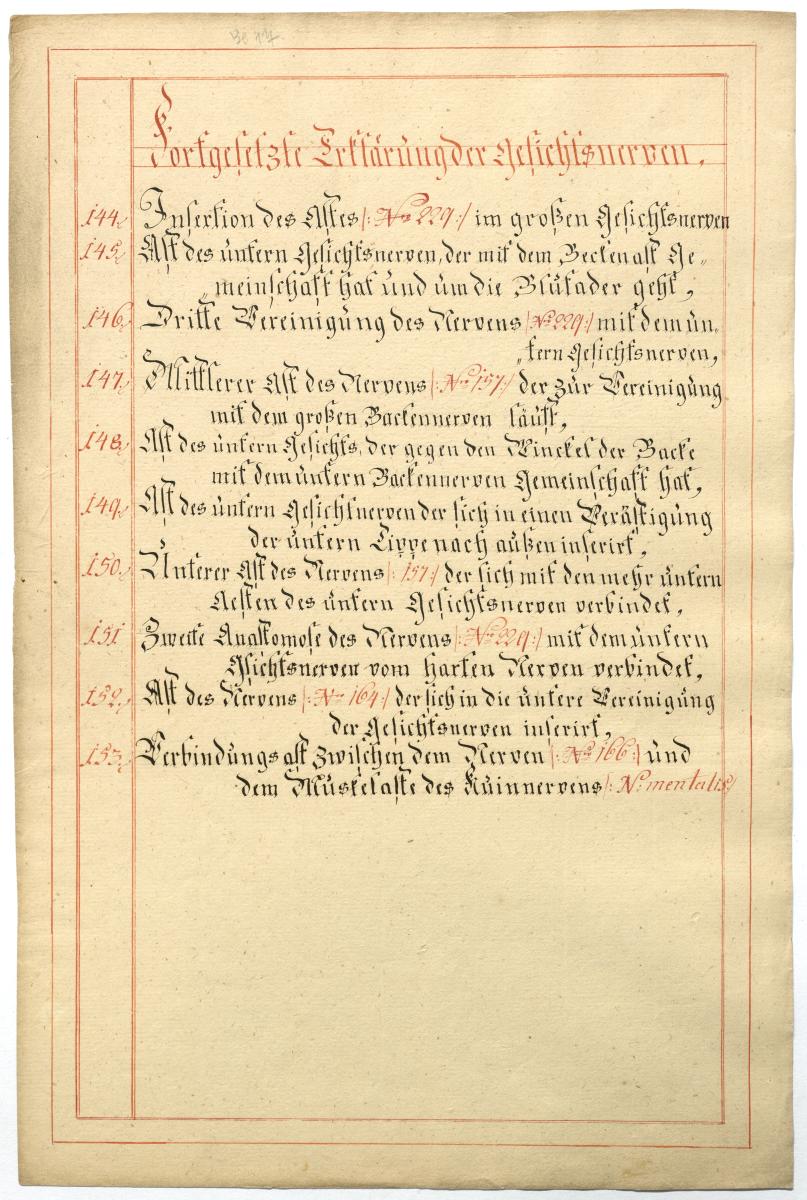 Fortgesetzte Erklärung der Gesichtsnerven.
144. Insertion des Astes /: No 229 :/ im großen Gesichtsnerven
145. Ast des untern Gesichtsnerven, der mit dem Backenast Ge„
„meinschaft hat und um die Blutader geht,
146. Dritte Vereinigung des Nervens /: No 229 :/ mit dem un„
„tern Gesichtsnerven,
147. Mittlerer Ast des Nervens /: No 157 :/ der zur Vereinigung
mit dem großen Backennerven läuft,
148. Ast des untern Gesichts, der gegen den Winckel der Backe
mit dem untern Backennerven Gemeinschaft hat,
149. Ast des untern Gesichtnerven der sich in einen Verästigung
der untern Lippe nach außen inserirt,
150. Unterer Ast des Nervens /: 157 :/ der sich mit den mehr untern
Aesten des untern Gesichtsnerven verbindet,
151 Zweite Anastomose des Nervens /: No 229 :/ mit dem untern
Gsichtsnerven vom harten Nerven verbindet,
152. Ast des Nervens /: No 164 :/ der sich in die untere Vereinigung
der Gesichtsnerven inserirt,
153. Verbindungsast zwischen dem Nerven /: No 166 :/ und
dem Muskelaste des Kuinnervens /: N. mentalis :/